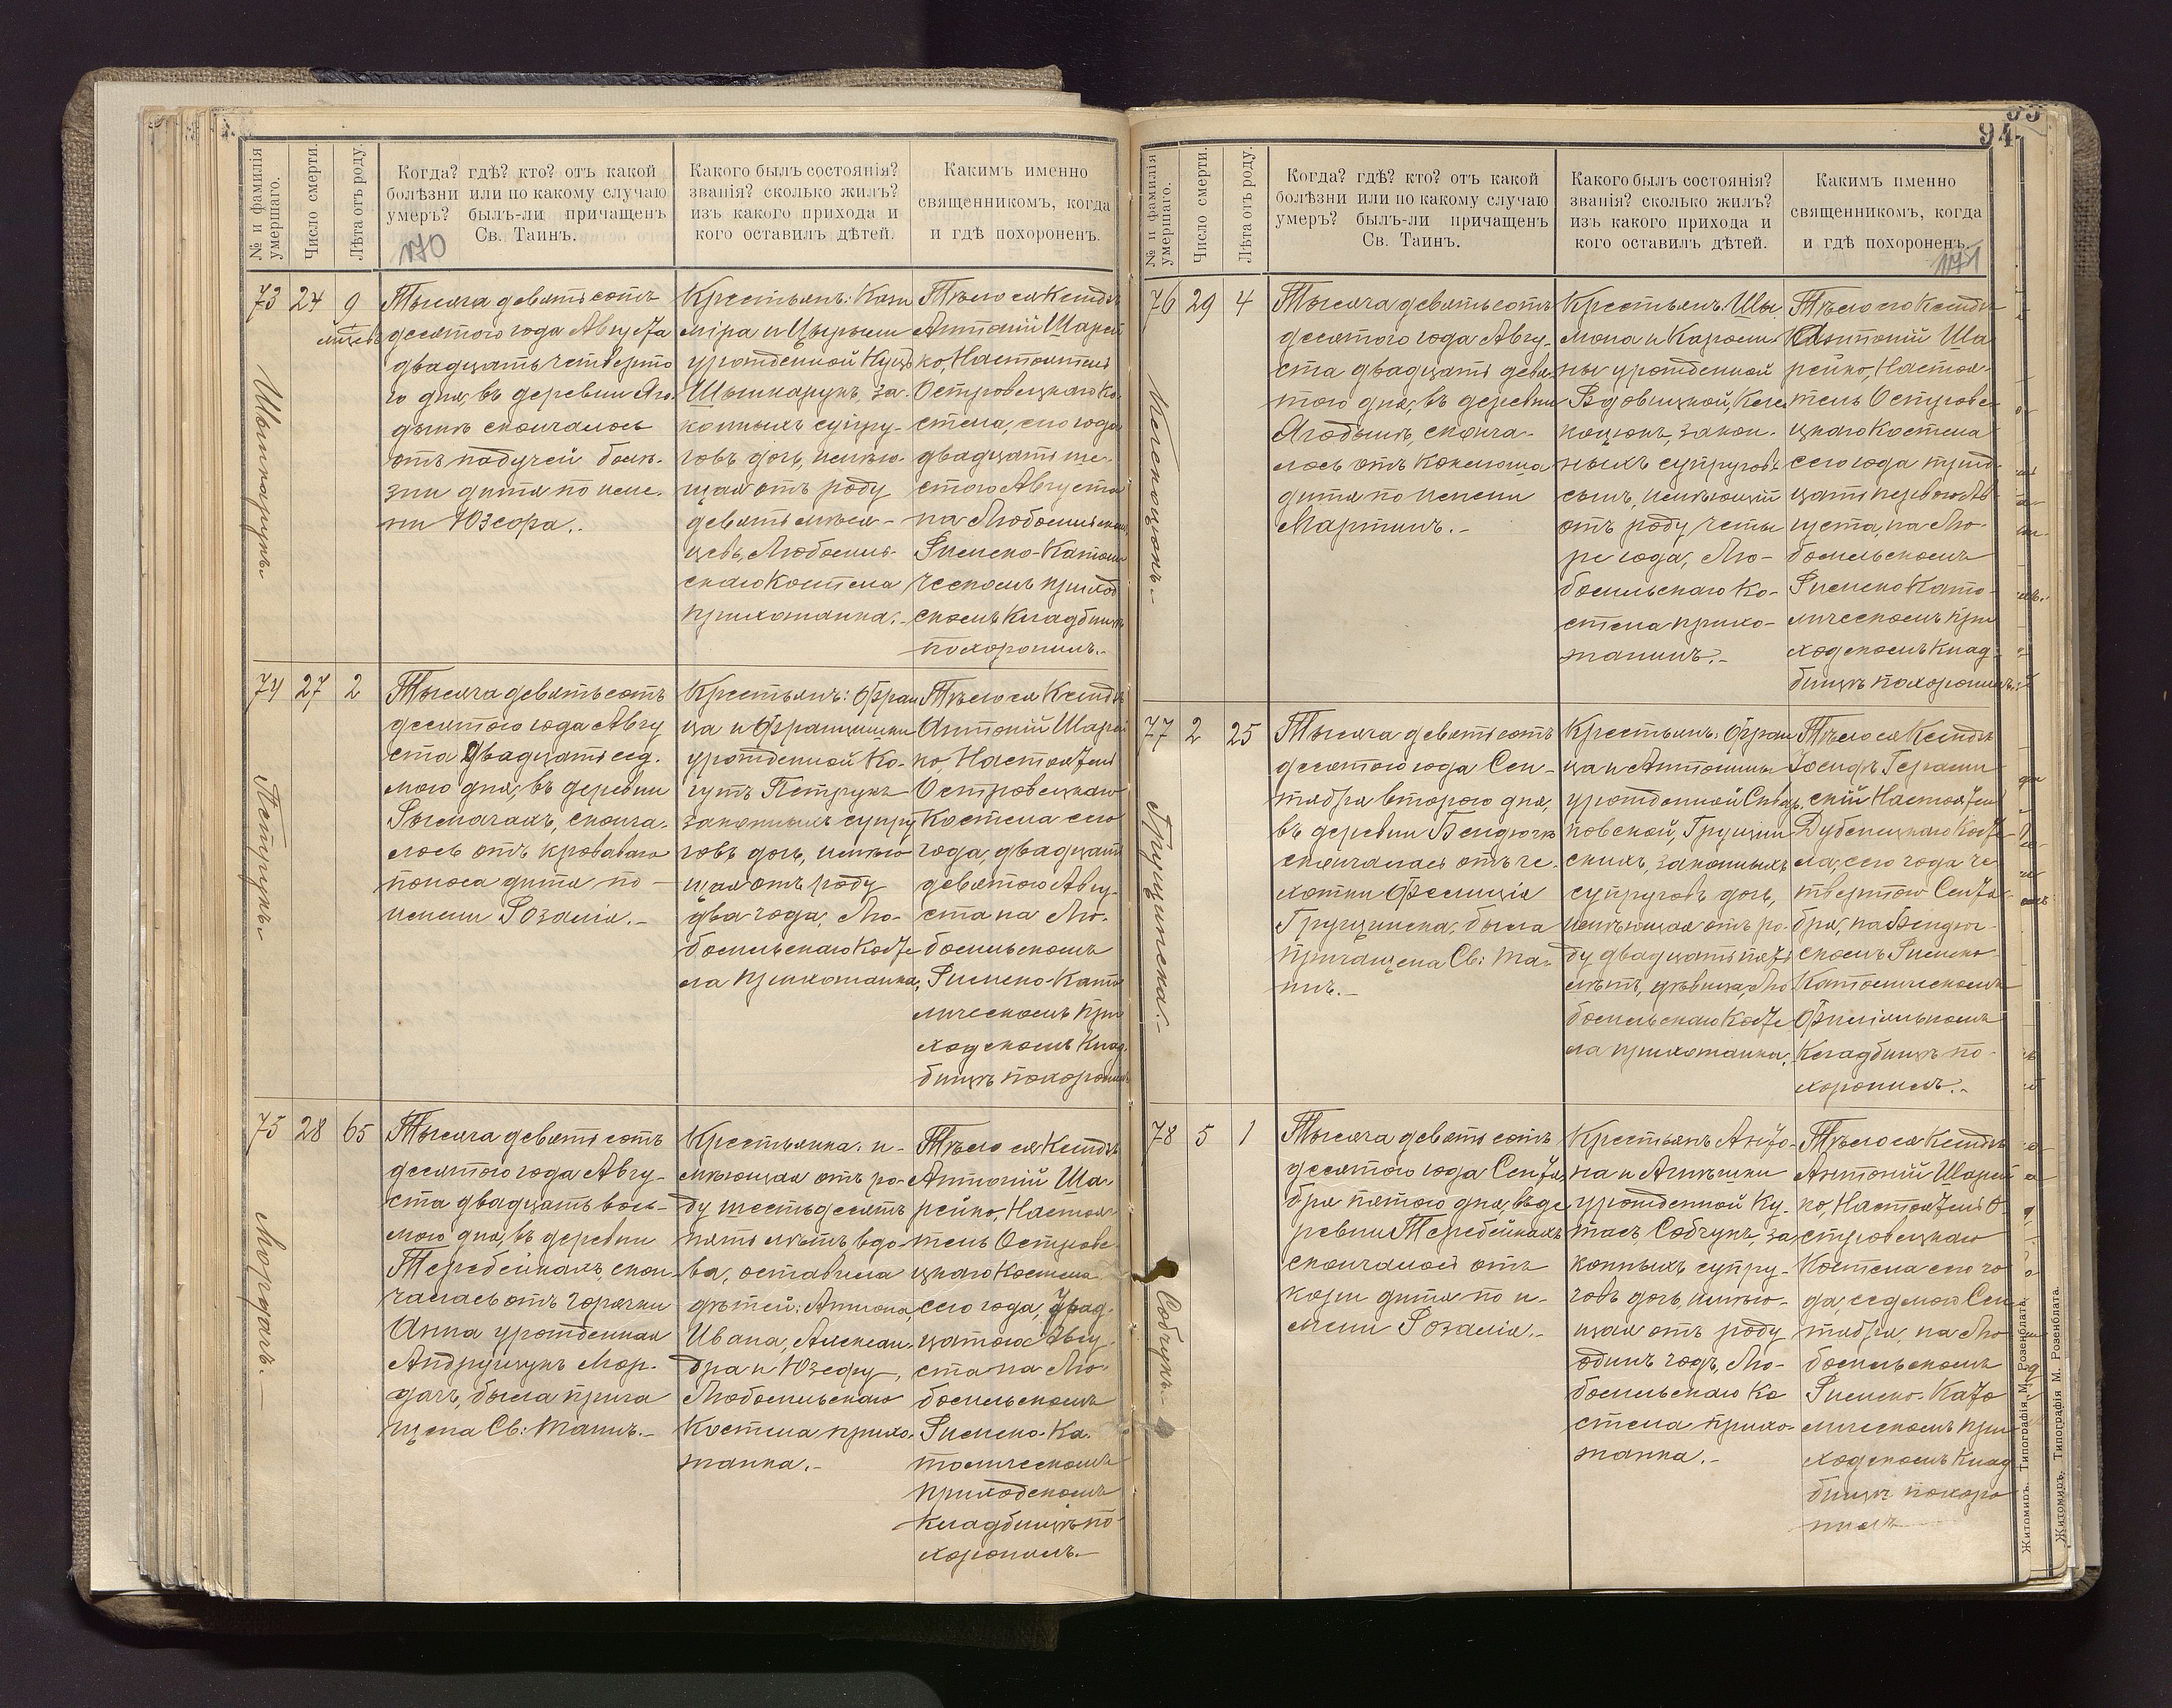 № и фамилія умершаго.
Число смерти.
Лѣта отъ роду.
Когда? гдѣ? кто? отъ какой
болѣзни или по какому случаю
умеръ? былъ-ли причащенъ
Св. Таинъ.
170
Какого былъ состоянія?
званія? сколько жилъ?
изъ какого прихода и
кого оставилъ дѣтей.
Какимъ именно
священникомъ, когда
и гдѣ похороненъ.
73
24
9
мѣсяц
Тысяча девятьсотъ
десятого года Августа
двадцать четверто
го дня, въ деревни Яго
дынъ скончалось
отъ падучей болѣ-
зни дитя по име-
ни Юзефа.
Крестьянъ: Кази
міра и
урожденной
Шышкарукъ, за-
конныхъ супру-
говъ дочь, имѣю-
щая отъ роду
девять мѣся-
цевъ, Любомль-
скаго Костела
прихожанка.-
Тѣло ея Ксендзъ
Антоній Шарей
ко, Настоятель
Островецкаго Ко
стела, сего года
двадцать ше-
стого Августа
на Любомльскомъ
Римско-Католи
ческомъ приход
скомъ Кладбищѣ
похоронилъ.-
Шышкарукъ
74
27
2
Тысяча девятьсотъ
десятого года Авгу
ста двадцать сед.
мого дня, въ деревни
Рымачахъ, сконча-
лось отъ кроваваго
поноса дитя по-
имени Розалія.-
Крестьянъ: Фран
ца и Францишки
урожденной Ко-
гутъ Петрукъ
законныхъ супру
говъ дочь, имѣю
щая отъ роду
два года, Лю-
бомльскаго Косте
ла прихожанка.
Тѣло ея Ксендзъ
Антоній Шарей
ко, Настоятель
Островецкаго
Костела сего
года, двадцать
девятого Авгу-
ста на Лю-
бомльскомъ
Римско-Като
лическомъ При
ходскомъ Клад-
бищѣ похоронилъ
Петрукъ
75
28
65
Тысяча девятьсотъ
десятого года Авгу-
ста двадцать вось-
мого дня, въ деревни
Теребейкахъ, скон
чалась отъ горячки
Анна урожденная
Андрущукъ Мор-
дачъ, была прича
щена Св: Таинъ.-
Крестьянка: и-
мѣющая отъ ро-
ду шестьдесятъ
пять лѣтъ вдо-
ва, оставила
дѣтей: Антона,
Ивана, Алексан-
дра и Юзефу,
Любомльскаго
Костела прихо-
жанка.-
Тѣло ея Ксендзъ
Антоній Ша-
рейко, Настоя-
тель Острове-
цкаго Костела
сего года, трид-
цатого Авгу-
ста на Лю-
бомльскомъ
Римско-Ка-
толическомъ
приходскомъ
Кладбищѣ по-
хоронилъ.-
Мордачъ.-
94
№ и фамилія умершаго.
Число смерти.
Лѣта отъ роду.
Когда? гдѣ? кто? отъ какой
болѣзни или по какому случаю
умеръ? былъ-ли причащенъ
Св. Таинъ.
Какого былъ состоянія?
званія? сколько жилъ?
изъ какого прихода и
кого оставилъ дѣтей.
Какимъ именно
священникомъ, когда
и гдѣ похороненъ.
171
76
29
4
Тысяча девятьсотъ
десятого года Авгу-
ста двадцать девя
того дня, въ деревни
Ягодынъ, сконча-
лось отъ коклюша
дитя по имени
Мартинъ.-
Крестьянъ: Шы
мона и Кароли-
ны урожденной
Вдовицкой,
закон-
ныхъ супруговъ
сынъ, имѣющій
отъ роду четы
ре года, Лю-
бомльскаго Ко-
стела прихо-
жанинъ.-
Тѣло его Ксендзъ
Антоній Ша
рейко, Настоя-
тель Острове
цкаго Костела
сего года трид-
цать перваго Ав
густа, на Лю-
бомльскомъ
Римско Като-
лическомъ При
ходскомъ Клад-
бищѣ похоронилъ.
77
2
25
Тысяча девятьсотъ
десятого года Сен-
тября второго дня,
въ деревни Бендюгъ
скончалась отъ че-
хотки Фелиція
Грущинска, была
причащена Св: Та-
инъ.-
Крестьянъ: Фран
ца и Антонины
урожденной Сквар
ковской, Грущин
скихъ, законныхъ
супруговъ дочь,
имѣющая отъ ро-
ду двадцать пять
лѣтъ, дѣвица, Лю
бомльскаго Косте
ла прихожанка.
Тѣло ея Ксендзъ
Іосифъ
скій Настоятель
Дубенецкаго Косте
ла, сего года че
твертого Сентя-
бря, на Бендюг-
скомъ Римско-
Католическомъ
Филіяльномъ
Кладбищѣ по-
хоронилъ.-
Грущинска.-
78
5
1
Тысяча девятьсотъ
десятого года Сентя
бря пятого дня, въ де
ревни Теребейкахъ
скончалось отъ
кори дитя по и-
мени Розалія.-
Крестьянъ Анто-
на и Агнѣшки
урожденной Ку-
тасъ, Собчукъ, за
конныхъ супру-
говъ дочь, имѣю-
щая отъ роду
одинъ годъ, Лю-
бомльскаго Ко
стела прихо-
жанка.-
Тѣло ея Ксендзъ
Антоній Шарей
ко, Настоятель О-
стровецкаго
Костела сего го
да, седмого Сен
тября, на Лю
бомльскомъ
Римско-Като
лическомъ При
ходскомъ Клад
бищѣ похоро
нилъ
Собчукъ.-
Житомиръ. Типографія М. Розенблата.
Житомиръ. Типографія М. Розенблата.